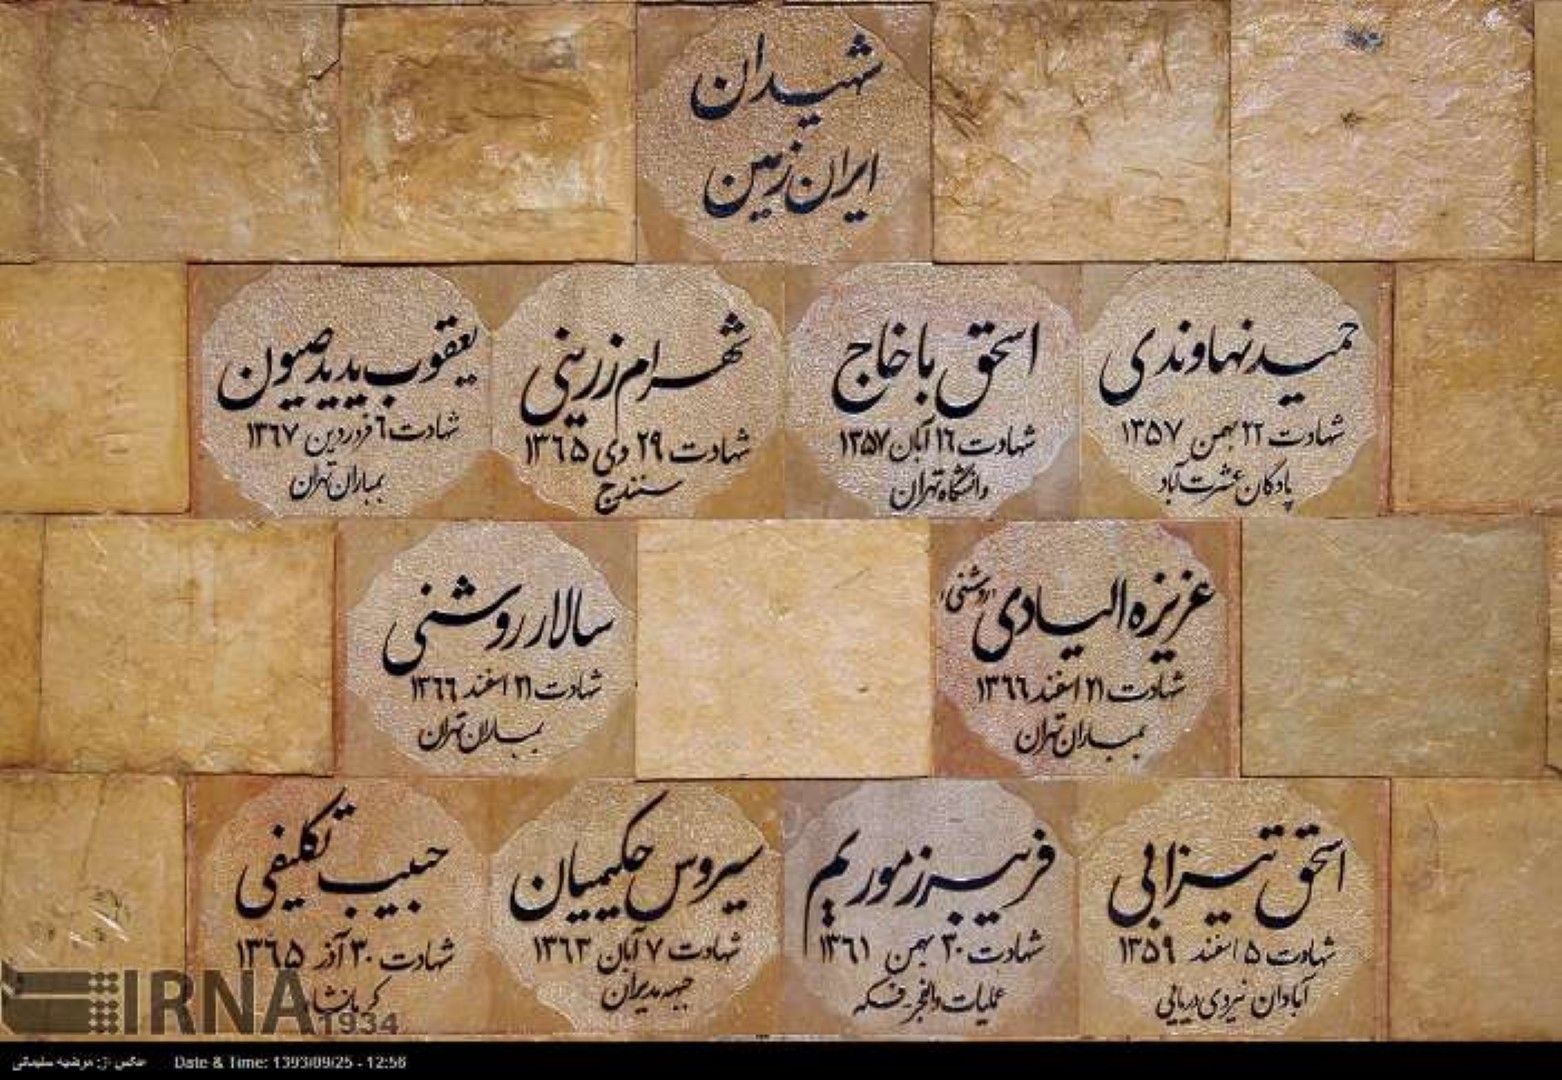 شهیدان
ایران زمین
حمید نهاوندی
شهادت ۲۲ بهمن ۱۳۵۷
پادگان عشرت آباد
اسحق باخاج
شهادت ۱۶ آبان ۱۳۵۷
دانشگاه تهران
شهرام زرینی
شهادت ۲۹ دی ۱۳۶۵
سنندج
یعقوب یدیدصیون
شهادت ۶ فروردین ۱۳۶۷
بمباران تهران
عزیزه الیادی (روشنی)
شهادت ۲۱ اسفند ۱۳۶۶
بمباران تهران
سالار روشنی
شهادت ۲۱ اسفند ۱۳۶۶
بمباران تهران
اسحق تیزابی
شهادت ۵ اسفند ۱۳۵۹
آبادان نیروی دریایی
فریبرز موریم
شهادت ۳۰ بهمن ۱۳۶۱
عملیات والفجر فکه
سیروس حکیمیان
شهادت ۷ آبان ۱۳۶۳
جبهه مدیران
حبیب تکلیفی
شهادت ۳۰ آذر ۱۳۶۵
کرمانشاه
IRNA
1934
عکس از: مرضیه سلیمانی Date & Time: 1393/09/25 - 12:56